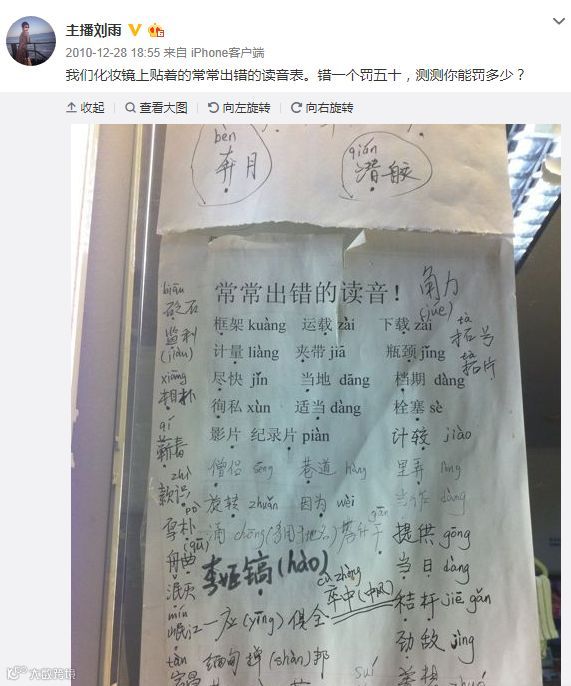 主播刘雨
2010-12-28 18:55 来自 iPhone客户端
我们化妆镜上贴着的常常出错的读音表。错一个罚五十，测测你能罚多少？
收起 查看大图 向左旋转 向右旋转
bèn
奔月
qián
潜艇
常常出错的读音！
角力
(jué)
框架 kuàng 运载 zài 下载 zài
tà
拓号
计量 liàng 夹带 jiā 瓶颈 jǐng
tà
拓片
尽快 jǐn 当地 dāng 档期 dàng
徇私 xùn 适当 dàng 栓塞 sè
影片 纪录片 piàn 计较 jiào
僧侣 sēng 巷道 hàng 里弄 lòng
旋转 zhuǎn 因为 wèi 当作 dàng
涌 chōng (多用于地名) 若干 gān 提供 gōng
李延镐 (hào) 当日 dàng
cù zhòng
卒中 (中风) 秸秆 jiē gǎn
一应 (yīng) 俱全 劲敌 jìng
缅甸掸 (shàn) 邦
suí
biān
砭石
监利
(jiàn)
xiāng
相扑
qí
蕲春
zhì
款识
pò
厚朴
(qū)
舟曲
泯灭
mín
岷江
tán
大数跨境